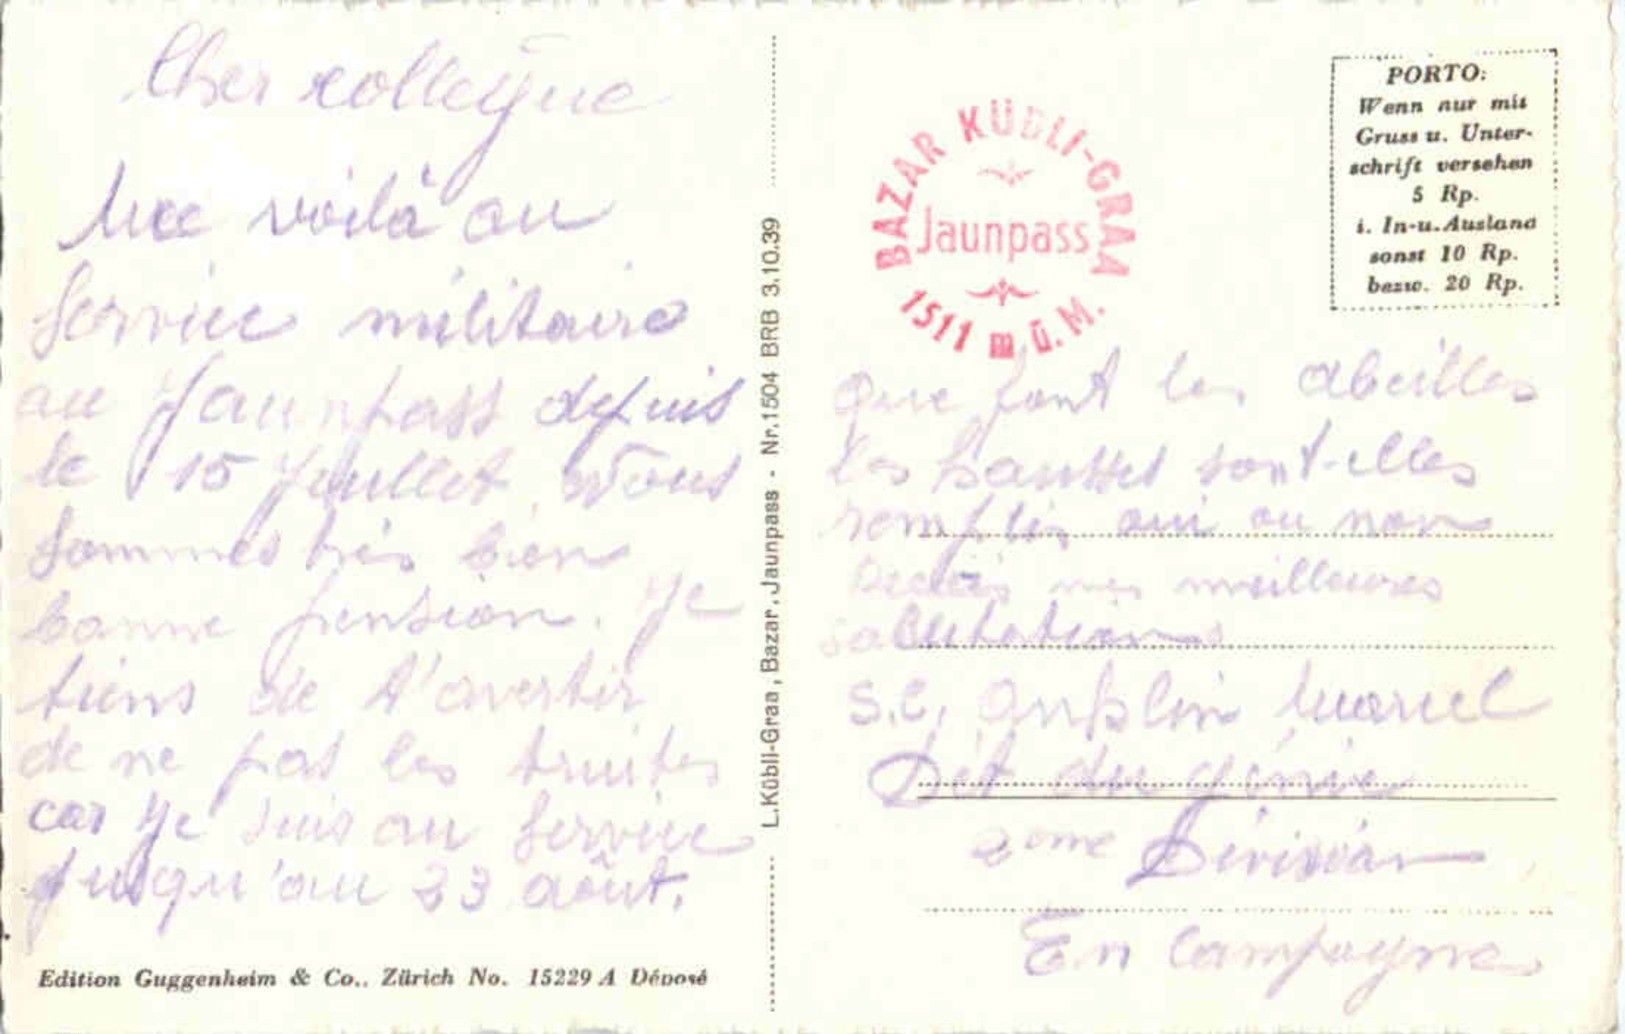 Cher collegue
Me voilà au
Service militaire
au Jaunpass depuis
le 15 Juillet Nous
sommes très bien
bonne pension. Je
tiens de t'avertir
de ne pas les truites
car Je suis au Service
Jusqu'au 23 août.
Edition Guggenheim & Co., Zürich No. 15229 A Déposé
L. Kübli-Graa, Bazar, Jaunpass - Nr. 1504 BRB 3.10.39
BAZAR KÜBLI-GRAA
Jaunpass
1511 m ü. M.
PORTO:
Wenn nur mit
Gruss u. Unter-
schrift versehen
5 Rp.
i. In-u. Ausland
sonst 10 Rp.
bezw. 20 Rp.
Que font les abeilles
les hausses sont-elles
remplies oui ou non
mes meilleures
salutations
S.C. Marcel
Dét du génie
2ome Division
En Campagne